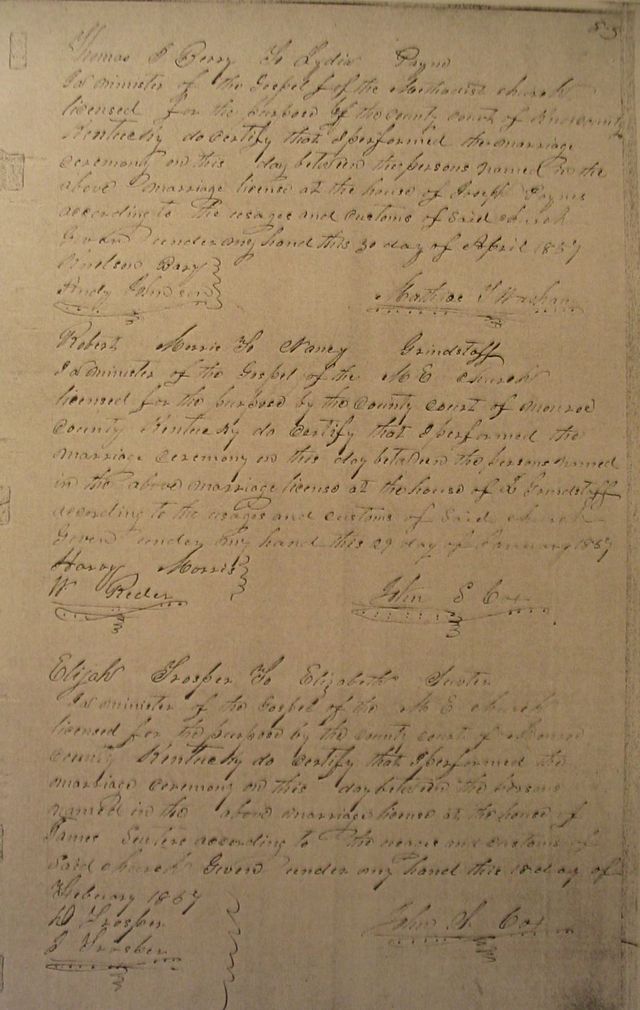 Thomas J Berry To Lydia Payne
I a minister of the Gospel of the Methodist church
licensed for the purpose by the county court of
Kentucky do certify that I performed the marriage
ceremony on this day between the persons named in the
above marriage license at the house of Joseph Paynes
according to the usages and customs of said church
Given under my hand this 30 day of April 1857
Andy Johnson
Robert Morris To Nancy Grindstaff
I a minister of the Gospel of the M E church
licensed for the purpose by the County court of Monroe
County Kentucky do certify that I performed the
marriage ceremony on this day between the persons named
in the above marriage license at the house of Grindstaff
according to the usages and customs of said church
Given under my hand this 29 day of January 1857
Harvy Morris
W Reder John S Cox
Elijah Trosper To Elizabeth
I a minister of the Gospel of the M E church
licensed for the purpose by the county court of Monroe
County Kentucky do certify that I performed the
marriage ceremony on this day between the persons
named in the above marriage license at the house of
James according to the usages and customs of
said church Given under my hand this 18 day of
February 1857
Trosper John S Cox
Trosper